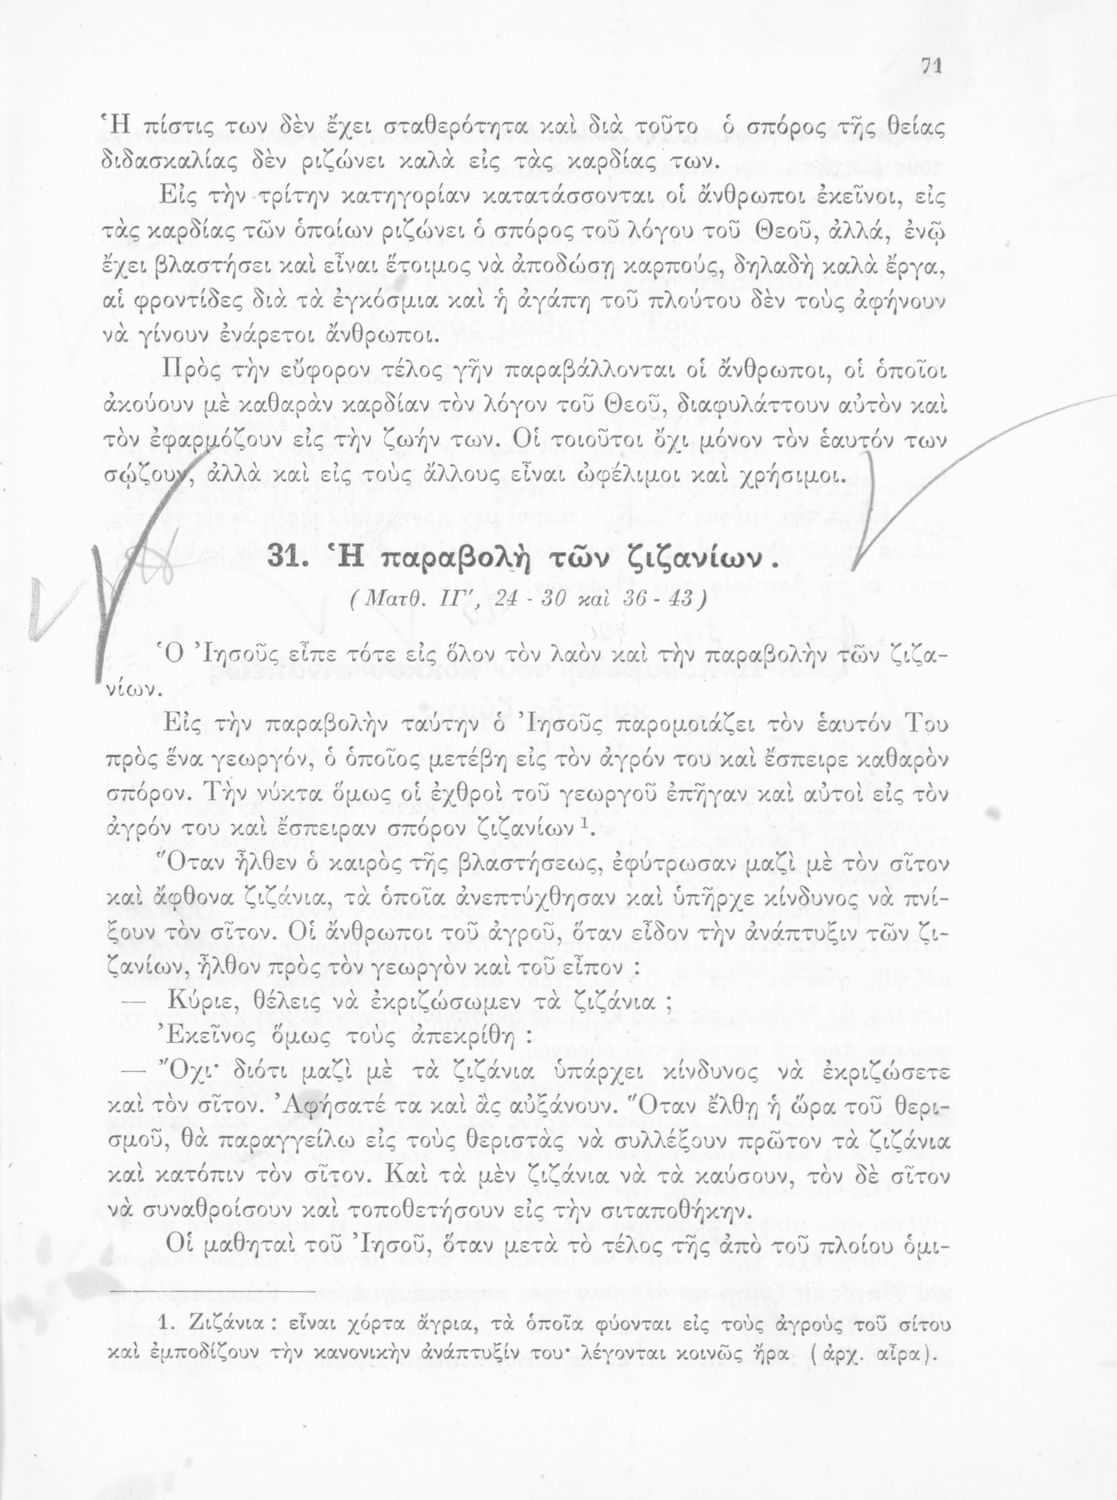 71
Ἡ πίστις των δὲν ἔχει σταθερότητα καὶ διὰ τοῦτο ὁ σπόρος τῆς θείας
διδασκαλίας δὲν ριζώνει καλὰ εἰς τὰς καρδίας των.
Εἰς τὴν τρίτην κατηγορίαν κατατάσσονται οἱ ἄνθρωποι ἐκεῖνοι, εἰς
τὰς καρδίας τῶν ὁποίων ριζώνει ὁ σπόρος τοῦ λόγου τοῦ Θεοῦ, ἀλλά, ἐνῷ
ἔχει βλαστήσει καὶ εἶναι ἕτοιμος νὰ ἀποδώσῃ καρπούς, δηλαδὴ καλὰ ἔργα,
αἱ φροντίδες διὰ τὰ ἐγκόσμια καὶ ἡ ἀγάπη τοῦ πλούτου δὲν τοὺς ἀφήνουν
νὰ γίνουν ἐνάρετοι ἄνθρωποι.
Πρὸς τὴν εὔφορον τέλος γῆν παραβάλλονται οἱ ἄνθρωποι, οἱ ὁποῖοι
ἀκούουν μὲ καθαρὰν καρδίαν τὸν λόγον τοῦ Θεοῦ, διαφυλάττουν αὐτὸν καὶ
τὸν ἐφαρμόζουν εἰς τὴν ζωήν των. Οἱ τοιοῦτοι ὄχι μόνον τὸν ἑαυτόν των
σῴζουν, ἀλλὰ καὶ εἰς τοὺς ἄλλους εἶναι ὠφέλιμοι καὶ χρήσιμοι.
31. Ἡ παραβολὴ τῶν ζιζανίων.
(Ματθ. ΙΓ′, 24 - 30 καὶ 36 - 43)
Ὁ Ἰησοῦς εἶπε τότε εἰς ὅλον τὸν λαὸν καὶ τὴν παραβολὴν τῶν ζιζα-
νίων.
Εἰς τὴν παραβολὴν ταύτην ὁ Ἰησοῦς παρομοιάζει τὸν ἑαυτόν Του
πρὸς ἕνα γεωργόν, ὁ ὁποῖος μετέβη εἰς τὸν ἀγρόν του καὶ ἔσπειρε καθαρὸν
σπόρον. Τὴν νύκτα ὅμως οἱ ἐχθροὶ τοῦ γεωργοῦ ἐπῆγαν καὶ αὐτοὶ εἰς τὸν
ἀγρόν του καὶ ἔσπειραν σπόρον ζιζανίων ¹.
Ὅταν ἦλθεν ὁ καιρὸς τῆς βλαστήσεως, ἐφύτρωσαν μαζὶ μὲ τὸν σῖτον
καὶ ἄφθονα ζιζάνια, τὰ ὁποῖα ἀνεπτύχθησαν καὶ ὑπῆρχε κίνδυνος νὰ πνί-
ξουν τὸν σῖτον. Οἱ ἄνθρωποι τοῦ ἀγροῦ, ὅταν εἶδον τὴν ἀνάπτυξιν τῶν ζι-
ζανίων, ἦλθον πρὸς τὸν γεωργὸν καὶ τοῦ εἶπον :
— Κύριε, θέλεις νὰ ἐκριζώσωμεν τὰ ζιζάνια ;
Ἐκεῖνος ὅμως τοὺς ἀπεκρίθη :
— Ὄχι· διότι μαζὶ μὲ τὰ ζιζάνια ὑπάρχει κίνδυνος νὰ ἐκριζώσετε
καὶ τὸν σῖτον. Ἀφήσατέ τα καὶ ἂς αὐξάνουν. Ὅταν ἔλθῃ ἡ ὥρα τοῦ θερι-
σμοῦ, θὰ παραγγείλω εἰς τοὺς θεριστὰς νὰ συλλέξουν πρῶτον τὰ ζιζάνια
καὶ κατόπιν τὸν σῖτον. Καὶ τὰ μὲν ζιζάνια νὰ τὰ καύσουν, τὸν δὲ σῖτον
νὰ συναθροίσουν καὶ τοποθετήσουν εἰς τὴν σιταποθήκην.
Οἱ μαθηταὶ τοῦ Ἰησοῦ, ὅταν μετὰ τὸ τέλος τῆς ἀπὸ τοῦ πλοίου ὁμι-
1. Ζιζάνια : εἶναι χόρτα ἄγρια, τὰ ὁποῖα φύονται εἰς τοὺς ἀγροὺς τοῦ σίτου
καὶ ἐμποδίζουν τὴν κανονικὴν ἀνάπτυξίν του· λέγονται κοινῶς ἤρα (ἀρχ. αἶρα).